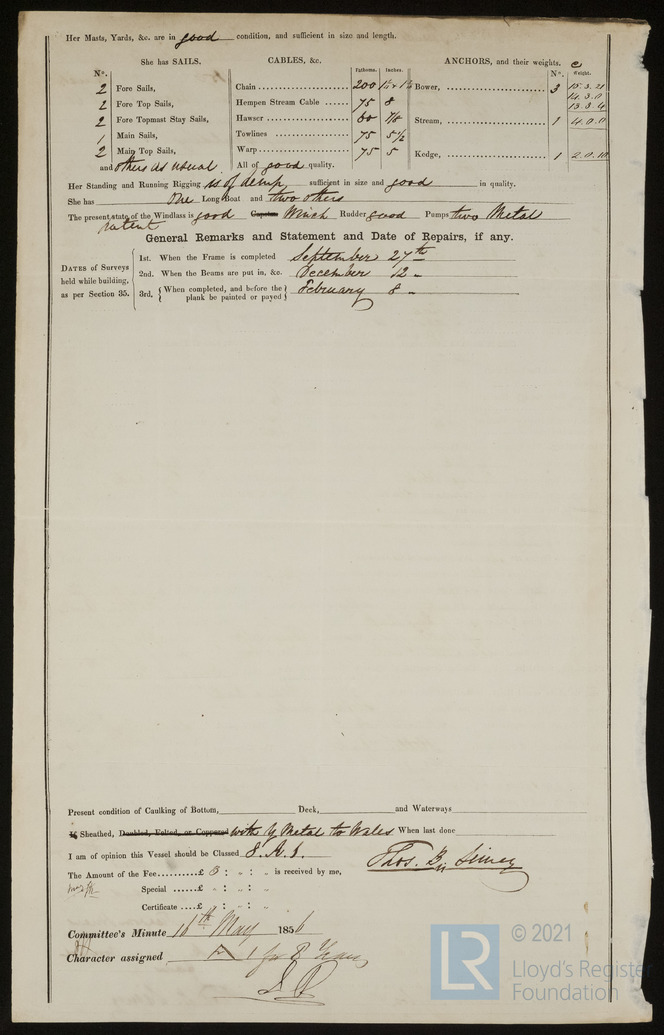 Her Masts, Yards, &c. are in good condition, and sufficient in size and length.
She has SAILS. CABLES, &c. ANCHORS, and their weights.
No. Fathoms. Inches. No. Weight.
2 Fore Sails, Chain 200 Bower, 3 15.3.21
2 Fore Top Sails, Hempen Stream Cable 75 8 14.3.0
2 Fore Topmast Stay Sails, Hawser 60 7/8 Stream, 1 4.0.0
13.3.4
1 Main Sails, Towlines 75 5½
2 Main Top Sails, Warp 75 5 Kedge, 1 2.0.10
and others as usual All of good quality.
Her Standing and Running Rigging is of hemp sufficient in size and good in quality.
She has One Long Boat and two others
The present state of the Windlass is good Capstan Winch Rudder good Pumps two Metal
patent
General Remarks and Statement and Date of Repairs, if any.
DATES of Surveys held while building, as per Section 35.
1st. When the Frame is completed September 27th
2nd. When the Beams are put in, &c. December 12 -
3rd, {When completed, and before the plank be painted or payed} February 8 -
Present condition of Caulking of Bottom, Deck, and Waterways
If Sheathed, Doubled, Felted, or Coppered with Y Metal to Wales When last done
I am of opinion this Vessel should be Classed 8.A.1.
The Amount of the Fee £ 5 : „ : „ is received by me, Thos.
Special £ „ : „ : „
Certificate £ „ : „ : „
Committee's Minute 16th May 1856
Character assigned A 1 for 8 Years
© 2021
LR
Lloyd's Register
Foundation